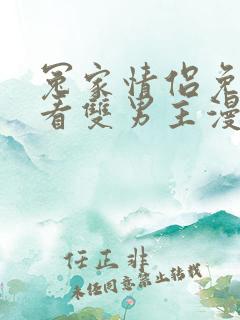 冤家情侣免
者雙男主漫
任正非
未经同意禁止转载